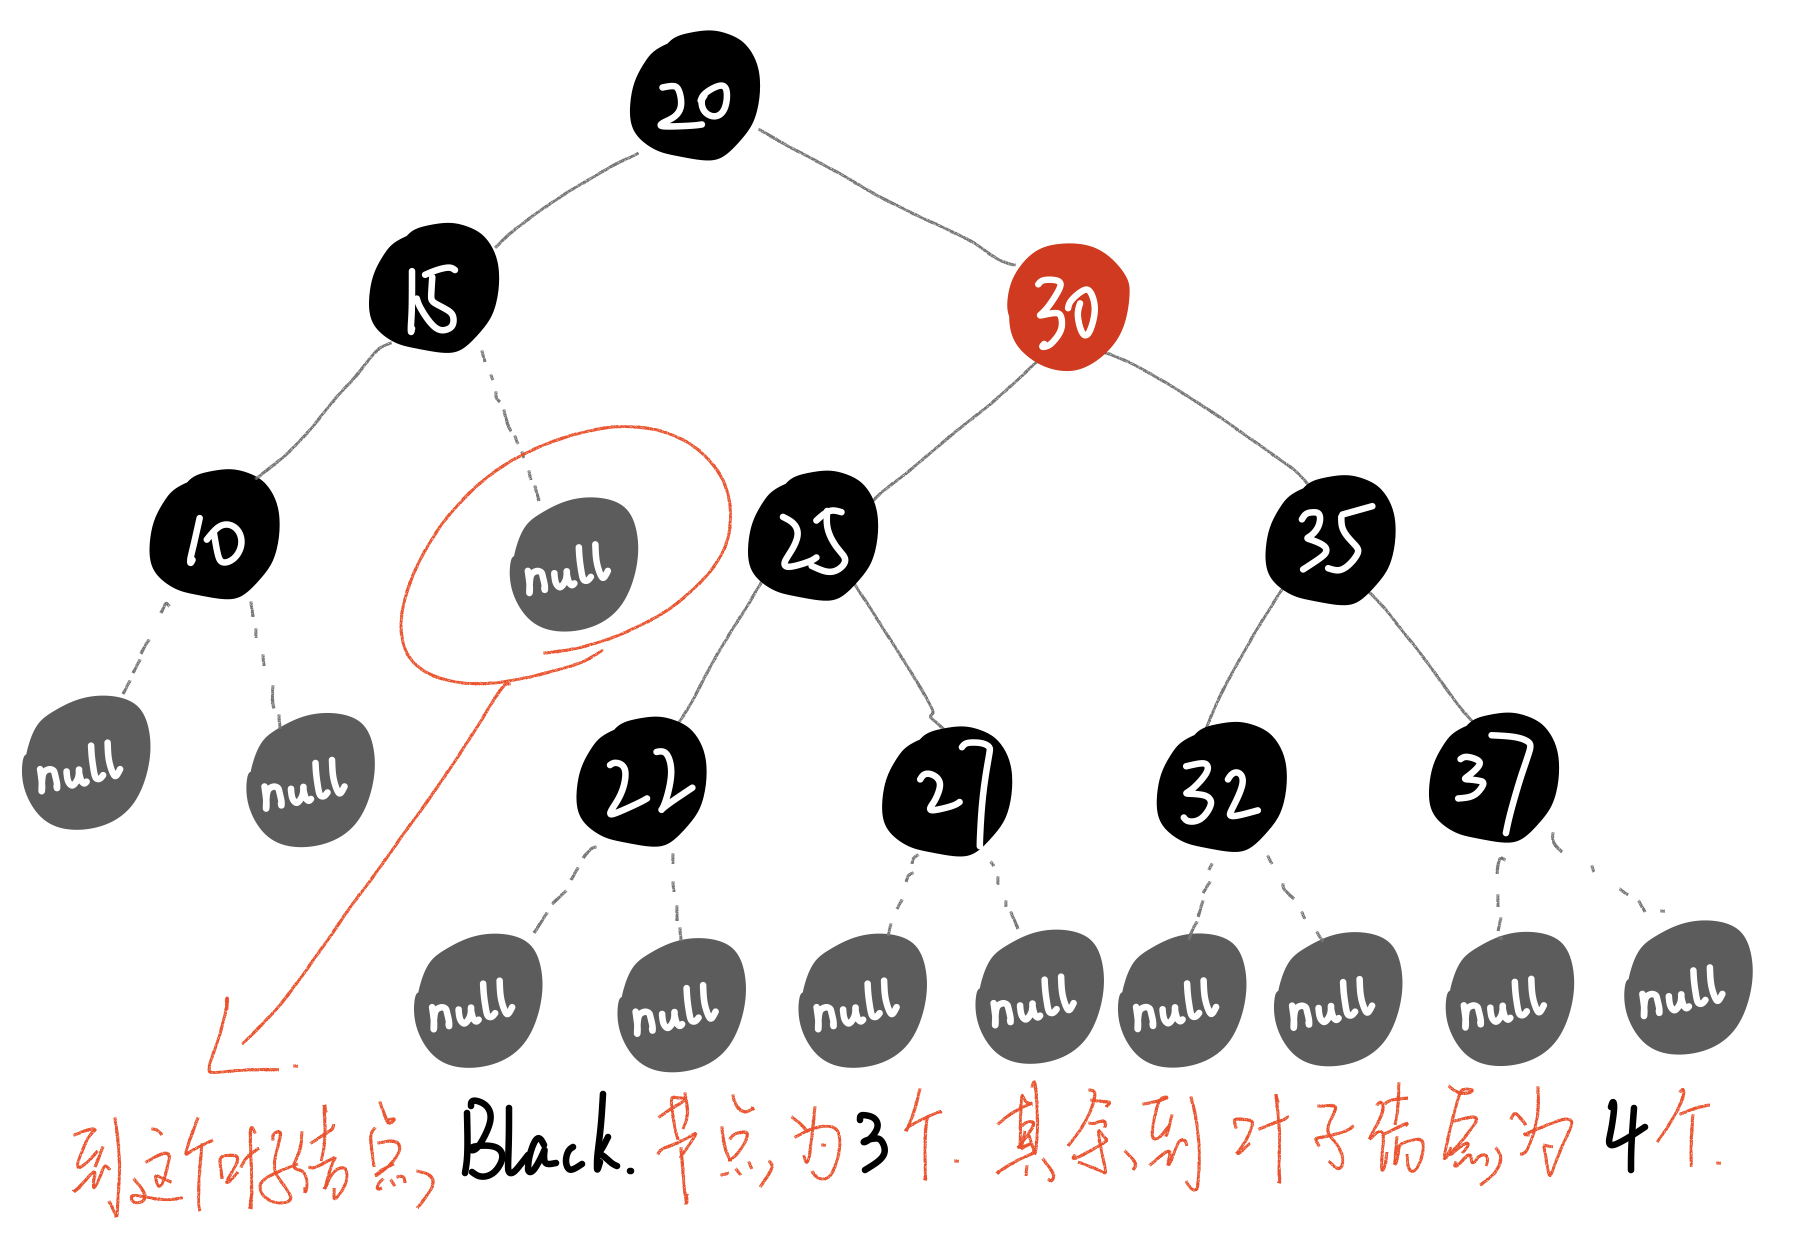 20
15
30
10
null
25
35
null
null
22
27
32
37
null
null
null
null
null
null
null
null
到这个叶子结点 Black. 节点为3个. 其余到叶子结点为4个.